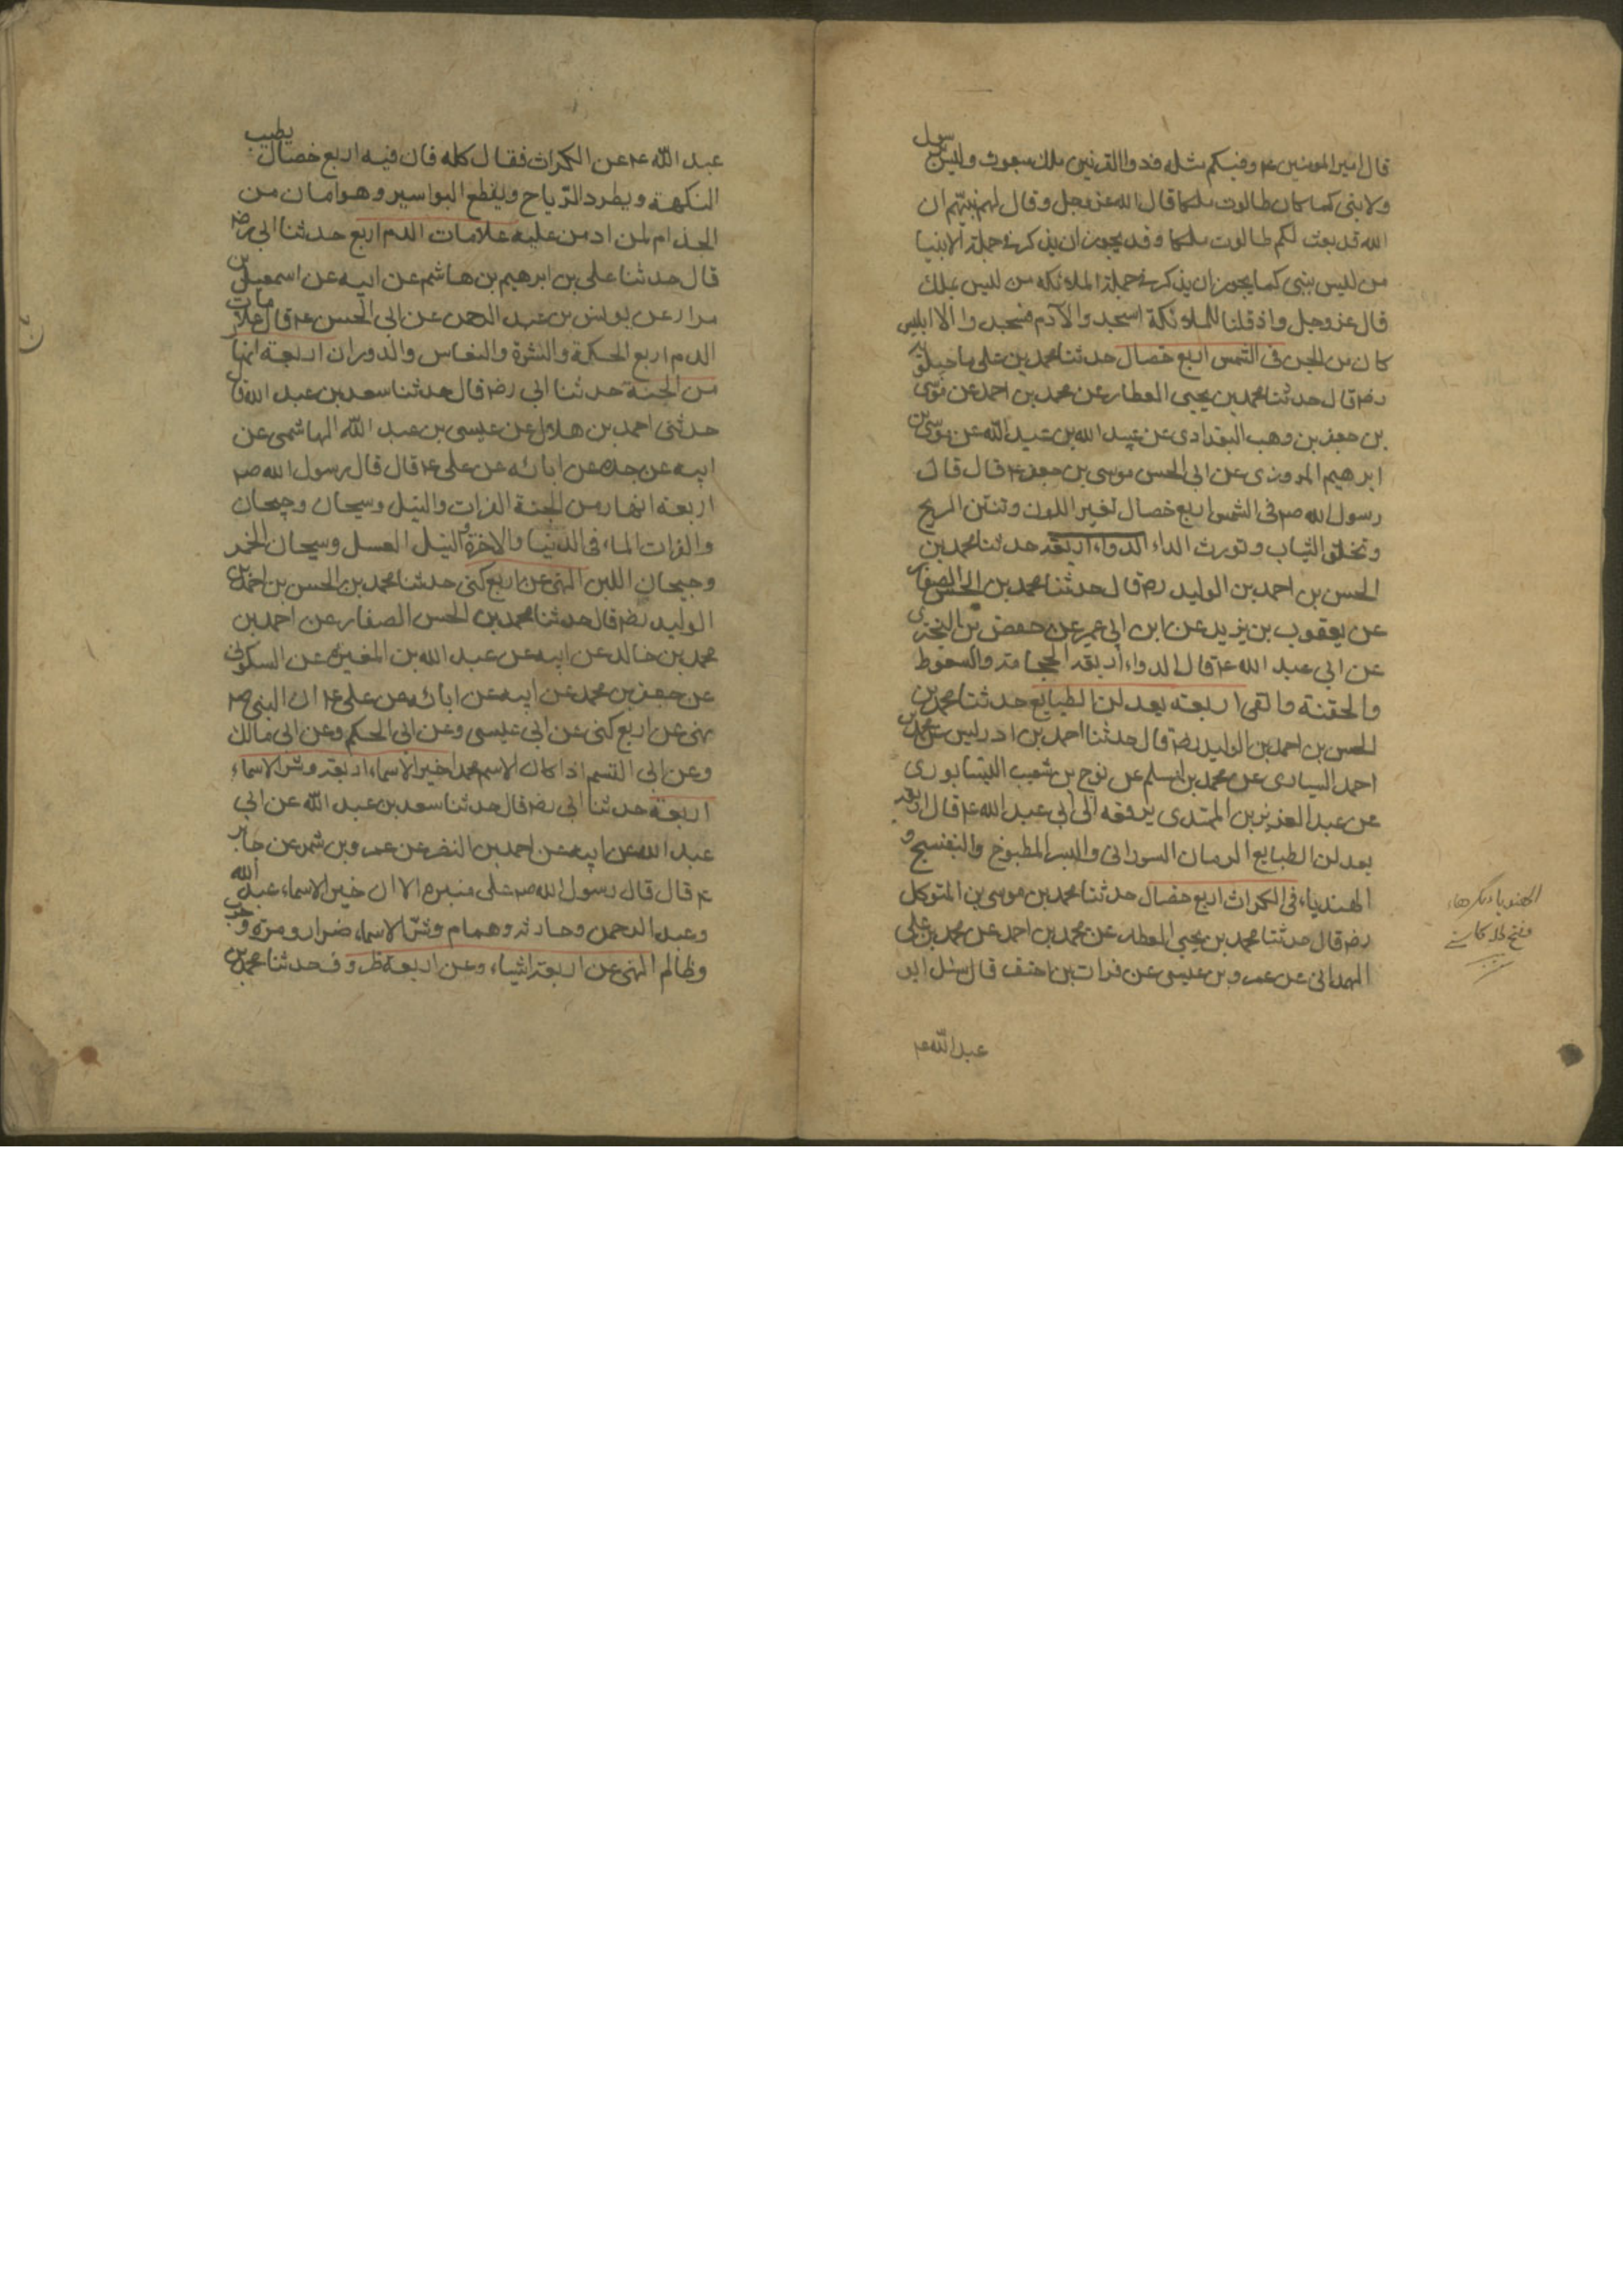 قال امير المومنين ع وفيكم مثله فذوالقرنين ملك مبعوث وليس برسول
ولا نبى كما كان طالوت ملكا قال الله عز وجل وقال لهم نبيّهم ان
الله قد بعث لكم طالوت ملكا وقد يجوز ان يذكر في جملة الانبيا
من ليس بنبى كما يجوز ان يذكر في جملة الملائكه من ليس بملك
قال عز وجل واذ قلنا للملائكة اسجدوا لآدم فسجدوا الا ابليس
كان من الجن في الشمس اربع خصال حدثنا محمد بن على ماجيلويه
رضه قال حدثنا محمد بن يحيى العطار عن محمد بن احمد عن موسى
بن جعفر بن وهب البغدادى عن عبيد الله بن عبد الله عن موسى بن
ابرهيم المروزى عن ابى الحسن موسى بن جعفر ع قال قال
رسول الله صم فى الشمس اربع خصال تغير اللون وتنتن الريح
وتخلق الثياب وتورث الداء الدواء اربعة حدثنا محمد بن
الحسن بن احمد بن الوليد رضه قال حدثنا محمد بن الحسن الصفار
عن يعقوب بن يزيد عن ابن ابى عمير عن حفص بن البخترى
عن ابى عبد الله ع قال الدواء اربعة الحجامة والسعوط
والحقنة والقى اربعة يعدلن الطبايع حدثنا محمد بن
الحسن بن احمد بن الوليد رضه قال حدثنا احمد بن ادريس عن محمد بن
احمد السيارى عن محمد بن اسلم عن نوح بن شعيب النيشابورى
عن عبد العزيز بن المهتدى يرفعه الى ابى عبد الله ع قال اربعة
يعدلن الطبايع الرمان السورانى والبسر المطبوخ والبنفسج و
الهندباء فى الكراث اربع خصال حدثنا محمد بن موسى بن المتوكل
رضه قال حدثنا محمد بن يحيى العطار عن محمد بن احمد عن محمد بن على
الهمدانى عن عمرو بن عيسى عن فرات بن احنف قال سئل ابو
عبد الله ع
عبد الله ع عن الكراث فقال كله فان فيه اربع خصال يطيب
النكهة ويطرد الرّياح ويقطع البواسير وهو امان من
الجذام لمن ادمن عليه علامات الدم اربع حدثنا ابى رضه
قال حدثنا على بن ابرهيم بن هاشم عن ابيه عن اسمعيل بن
مرار عن يونس بن عبد الرحمن عن ابى الحسن ع قال علامات
الدم اربع الحكة والبثرة والنعاس والدوران اربعة انهار
من الجنة حدثنا ابى رضه قال حدثنا سعد بن عبد الله قال
حدثنى احمد بن هلال عن عيسى بن عبد الله الهاشمى عن
ابيه عن جده عن ابائه عن على ع قال قال رسول الله صم
اربعة انهار من الجنة الفرات والنيل وسيحان وجيحان
والفرات الماء فى الدنيا والاخرة والنيل العسل وسيحان الخمر
وجيحان اللبن النهى عن اربع كنى حدثنا محمد بن الحسن بن احمد بن
الوليد رضه قال حدثنا محمد بن الحسن الصفار عن احمد بن
محمد بن خالد عن ابيه عن عبد الله بن المغيرة عن السكونى
عن جعفر بن محمد عن ابيه عن ابائه عن على ع ان النبى صم
نهى عن اربع كنى عن ابى عيسى وعن ابى الحكم وعن ابى مالك
وعن ابى القسم اذا كان الاسم محمدا خير الاسماء اربعة وشر الاسماء
اربعة حدثنا ابى رضه قال حدثنا سعد بن عبد الله عن ابى
عبد الله عن ابيه عن احمد بن النضر عن عمرو بن شمر عن جابر
ع قال قال رسول الله صم على منبره الا ان خير الاسماء عبد الله
وعبد الرحمن وحارثه وهمام وشرّ الاسماء ضرار ومرة وحرب
وظالم النهى عن اربعة اشياء وعن اربعة ظروف حدثنا محمد بن